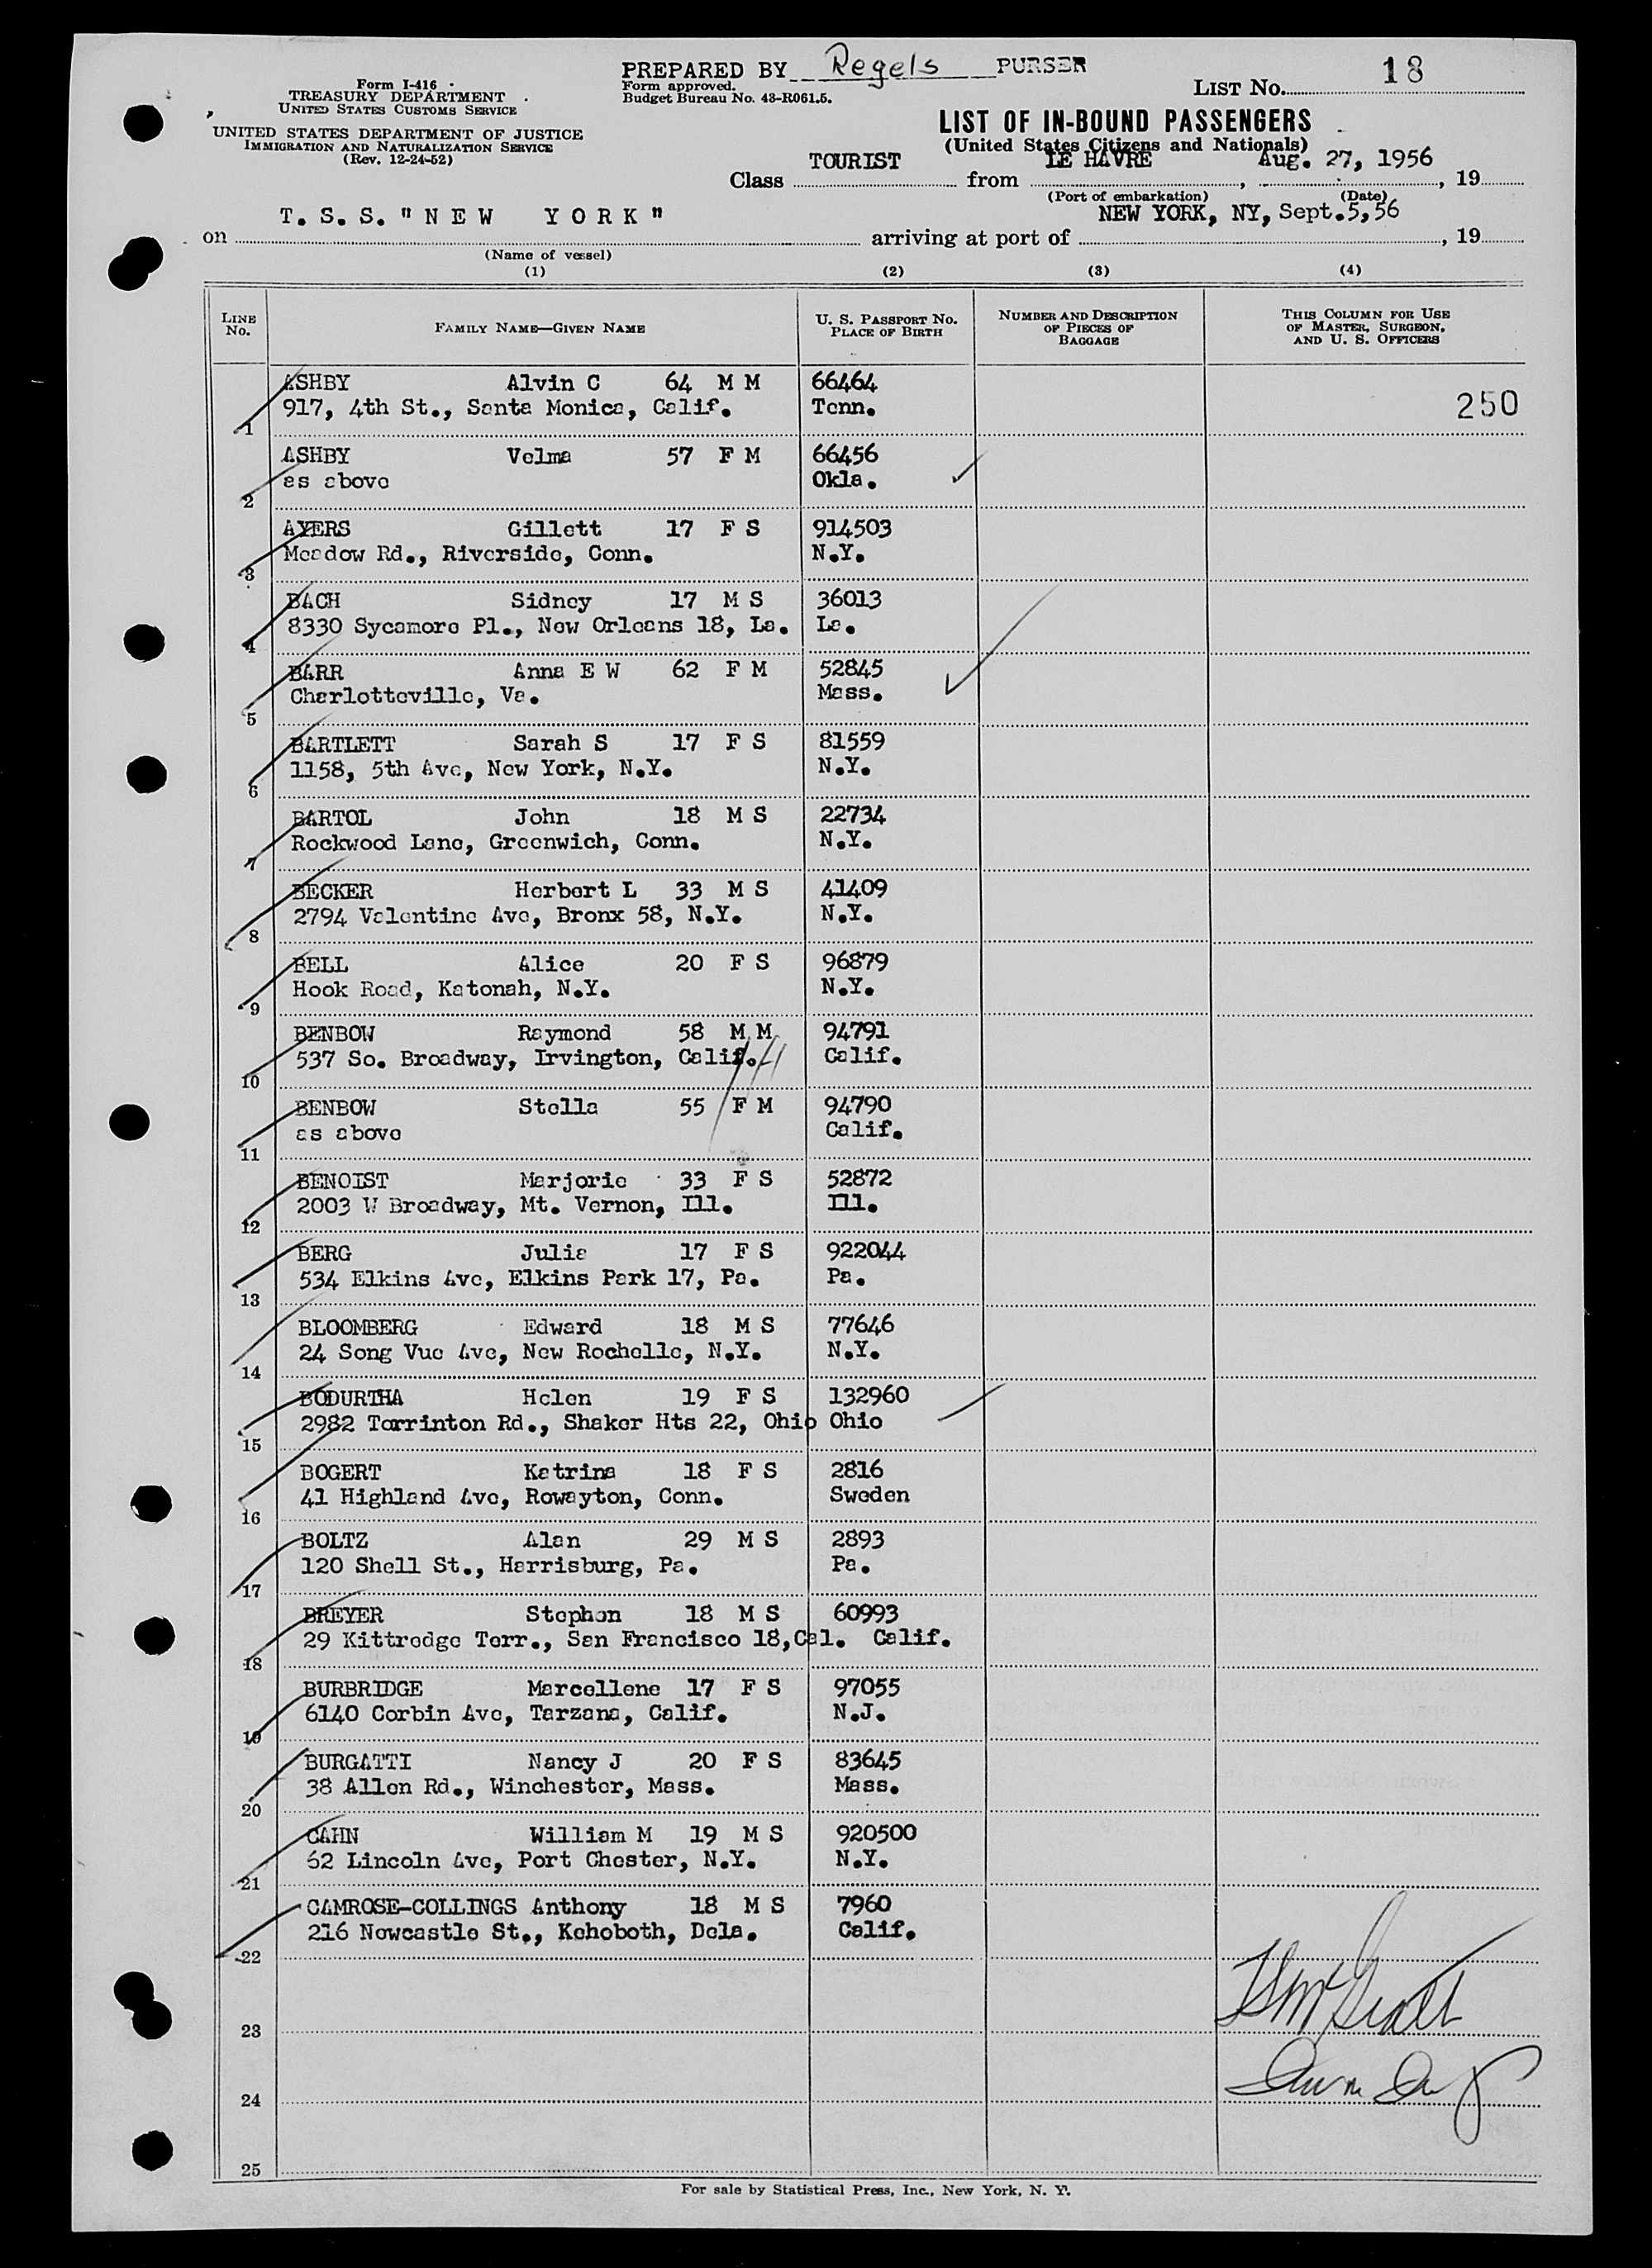 PREPARED BY Regels PURSER
Form approved.
Budget Bureau No. 43-R061.5.
Form I-416
TREASURY DEPARTMENT
UNITED STATES CUSTOMS SERVICE
UNITED STATES DEPARTMENT OF JUSTICE
IMMIGRATION AND NATURALIZATION SERVICE
(Rev. 12-24-52)
LIST NO. 18
LIST OF IN-BOUND PASSENGERS
(United States Citizens and Nationals)
Class TOURIST from LE HAVRE, Aug. 27, 1956, 19
(Port of embarkation) (Date)
on T. S. S. "NEW YORK" arriving at port of NEW YORK, NY, Sept.5,56, 19
(Name of vessel)
(1) (2) (3) (4)
LINE NO. FAMILY NAME—GIVEN NAME U. S. PASSPORT NO. PLACE OF BIRTH NUMBER AND DESCRIPTION OF PIECES OF BAGGAGE THIS COLUMN FOR USE OF MASTER, SURGEON, AND U. S. OFFICERS
ASHBY Alvin C 64 M M 66464
1 917, 4th St., Santa Monica, Calif. Tenn. 250
ASHBY Velma 57 F M 66456
2 as above Okla.
AYERS Gillett 17 F S 914503
3 Meadow Rd., Riverside, Conn. N.Y.
BACH Sidney 17 M S 36013
4 8330 Sycamore Pl., New Orleans 18, La. La.
BARR Anna E W 62 F M 52845
5 Charlotteville, Va. Mass.
BARTLETT Sarah S 17 F S 81559
6 1158, 5th Ave, New York, N.Y. N.Y.
BARTOL John 18 M S 22734
7 Rockwood Lane, Greenwich, Conn. N.Y.
BECKER Herbert L 33 M S 41409
8 2794 Valentine Ave, Bronx 58, N.Y. N.Y.
BELL Alice 20 F S 96879
9 Hook Road, Katonah, N.Y. N.Y.
BENBOW Raymond 58 M M 94791
10 537 So. Broadway, Irvington, Calif. Calif.
BENBOW Stella 55 F M 94790
11 as above Calif.
BENOIST Marjorie 33 F S 52872
12 2003 W Broadway, Mt. Vernon, Ill. Ill.
BERG Julia 17 F S 922044
13 534 Elkins Ave, Elkins Park 17, Pa. Pa.
BLOOMBERG Edward 18 M S 77646
14 24 Song Vue Ave, New Rochelle, N.Y. N.Y.
BODURTHA Helen 19 F S 132960
15 2982 Torrinton Rd., Shaker Hts 22, Ohio Ohio
BOGERT Katrina 18 F S 2816
16 41 Highland Ave, Rowayton, Conn. Sweden
BOLTZ Alan 29 M S 2893
17 120 Shell St., Harrisburg, Pa. Pa.
BREYER Stephen 18 M S 60993
18 29 Kittredge Terr., San Francisco 18,Cal. Calif.
BURBRIDGE Marcellene 17 F S 97055
19 6140 Corbin Ave, Tarzana, Calif. N.J.
BURGATTI Nancy J 20 F S 83645
20 38 Allen Rd., Winchester, Mass. Mass.
CAHN William M 19 M S 920500
21 62 Lincoln Ave, Port Chester, N.Y. N.Y.
CAMROSE-COLLINGS Anthony 18 M S 7960
22 216 Newcastle St., Kehoboth, Dela. Calif.
23
24
25
For sale by Statistical Press, Inc., New York, N. Y.